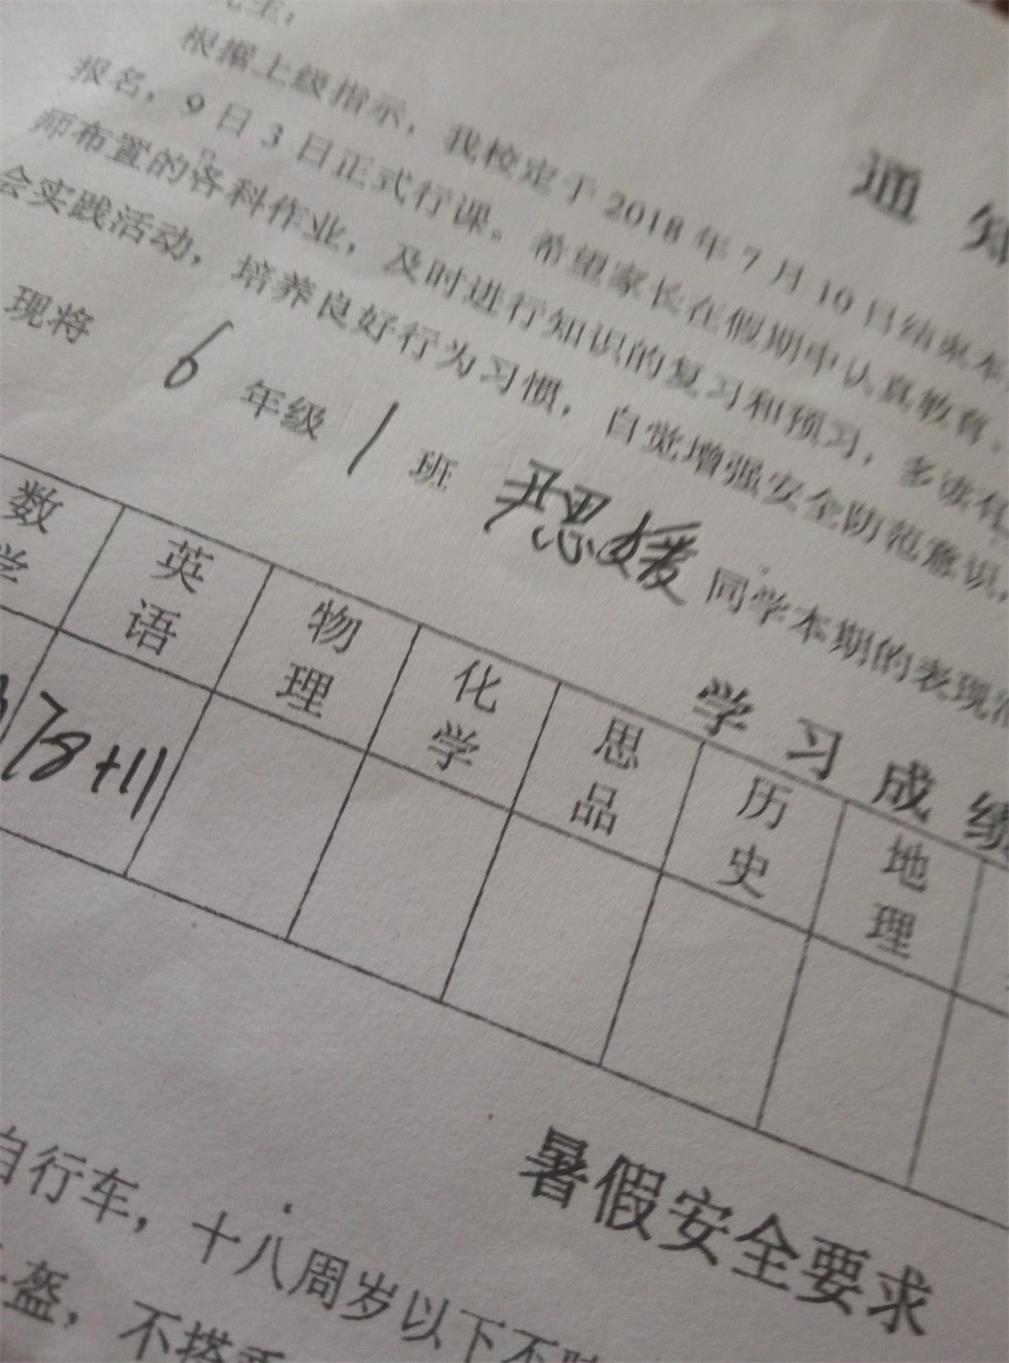 通知
根据上级指示，我校定于2018年7月10日结束本
报名，9日3日正式行课。希望家长在假期中认真教育、
师布置的各科作业，及时进行知识的复习和预习，多读有
会实践活动，培养良好行为习惯，自觉增强安全防范意识，
现将 6 年级 1 班 尹思媛 同学本期的表现
学习成绩
数学 英语 物理 化学 思品 历史 地理
78+11
暑假安全要求
自行车，十八周岁以下不
盔，不搭乘